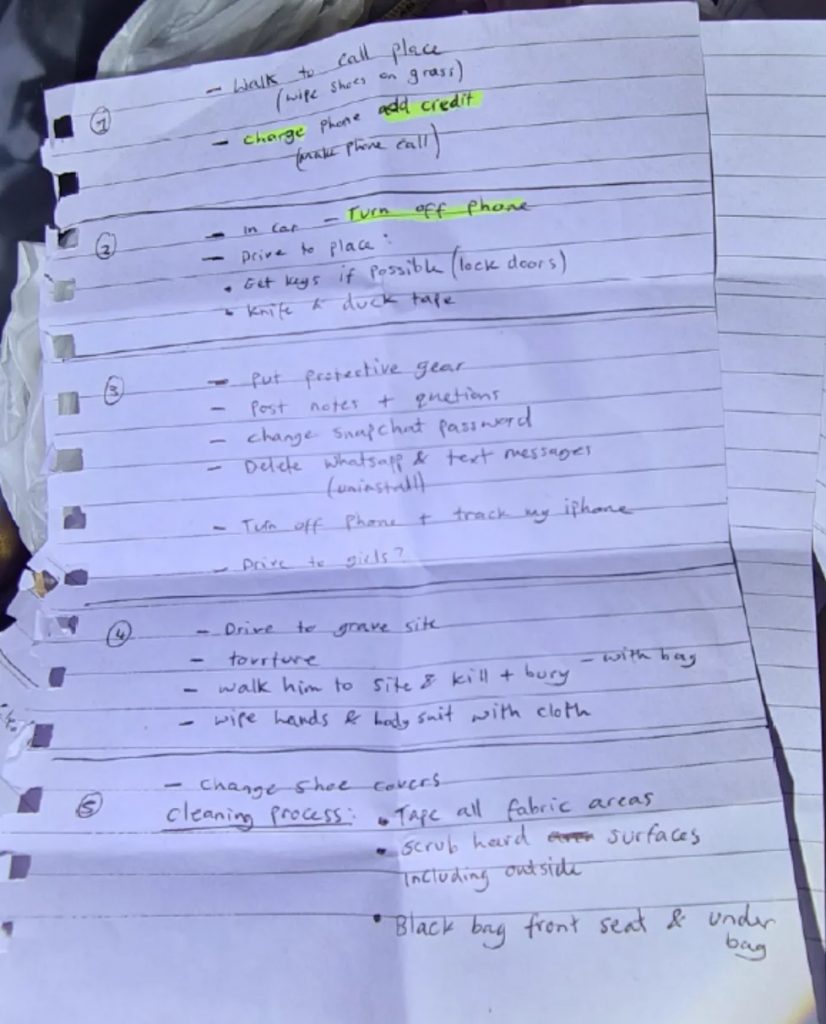 ①
- Walk to call place
(wipe shoes on grass)
- charge phone add credit
(make phone call)
②
- In car - Turn off phone
- Drive to place:
• Get keys if possible (lock doors)
• knife & duck tape
③
- Put protective gear
- Post notes + quetions
- change snapchat password
- Delete whatsapp & text messages
(uninstall)
- Turn off phone + track my iphone
- Drive to girls?
④
- Drive to grave site
- torrture
- walk him to site & kill + bury - with bag
- wipe hands & body suit with cloth
⑤
- change shoe covers
cleaning process: • Tape all fabric areas
• scrub heard surfaces
including outside
• Black bag front seat & under
bag